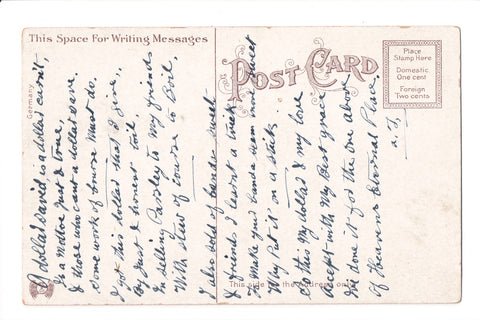 This Space For Writing Messages
POST CARD
Place
Stamp Here
Domestic
One cent
Foreign
Two cents
Germany
This side for the Address only
A dollar saved is a dollar earnt,
Is a motto just & true,
& those who cant a dollar save
some work of course must do.
I got this dollar that I give,
By just & honest toil.
In selling Parsley to my friends
With stew of course to Boil,
I also sold of candy sweet
& friends I learnt a trick
To make your candy seem more sweet
Why Put it on a stick
So this my dollar & my love
Accept with my Best grace
I've done it for the one above
of Heavens Eternal Place.